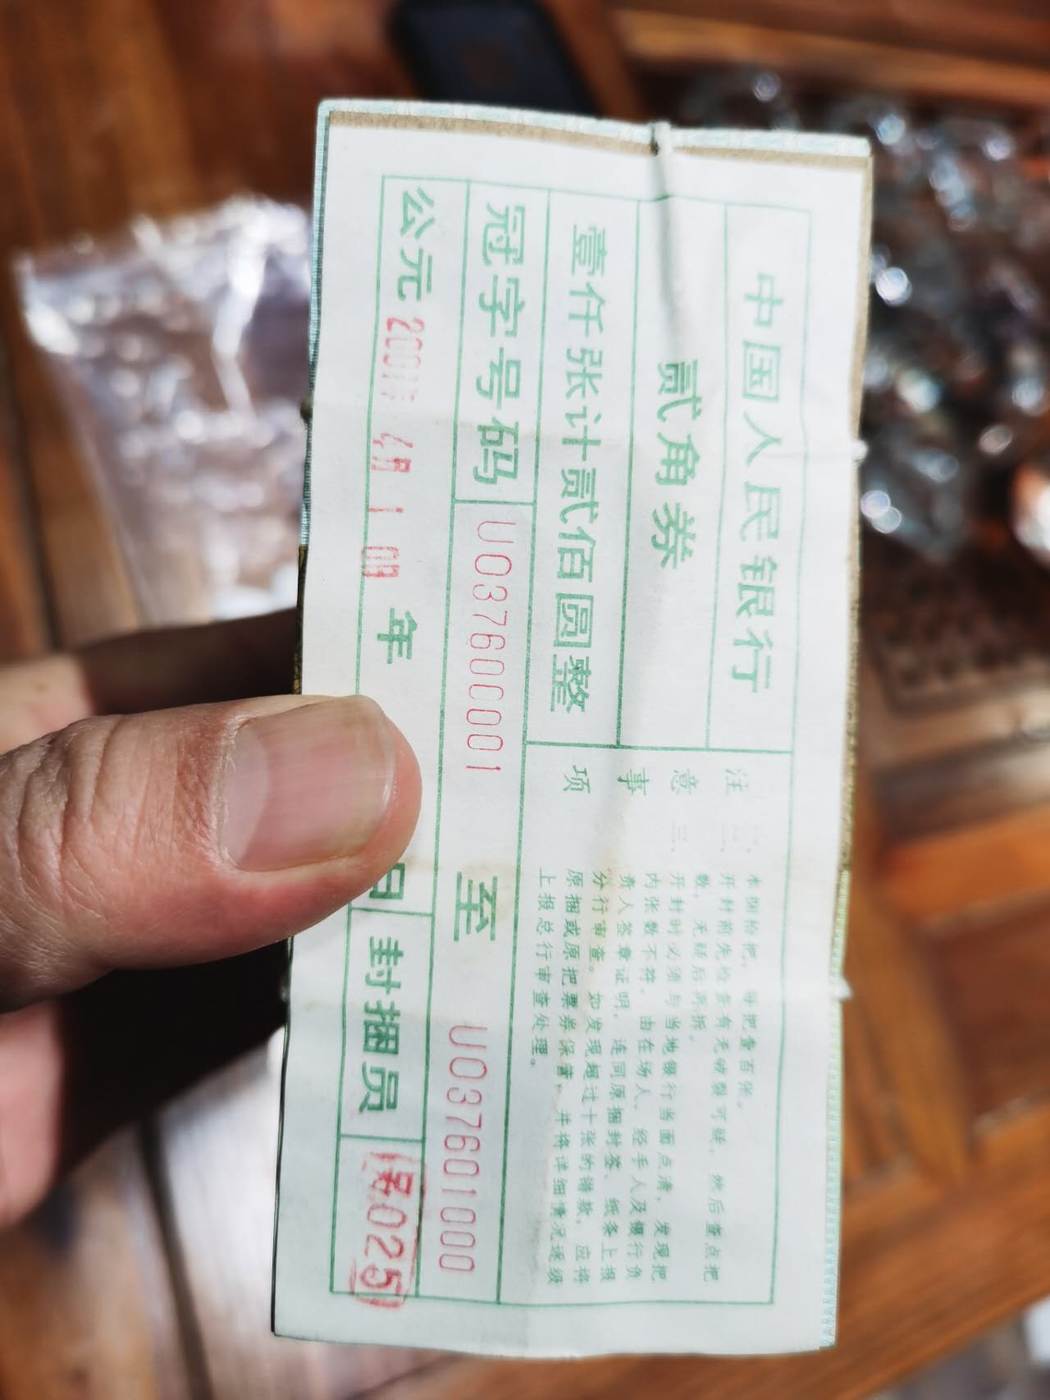 中国人民银行
贰角券
壹仟张计贰佰圆整
注意事项
本捆拾把，每把壹百张。
开封前先检查有无破裂可疑，然后查点把
数，无疑后再拆。
三 开封时必须与当地银行当面点清，发现把
内张数不符，由在场人、经手人及银行负
责人签章证明，连同原捆封签、纸条上报
分行审查。如发现超过十张的错款，应将
原捆或原把票券保管，并将详细情况逐级
上报总行审查处理。
冠字号码 UO37600001 至 UO37601000
公元 年 日 封捆员 025